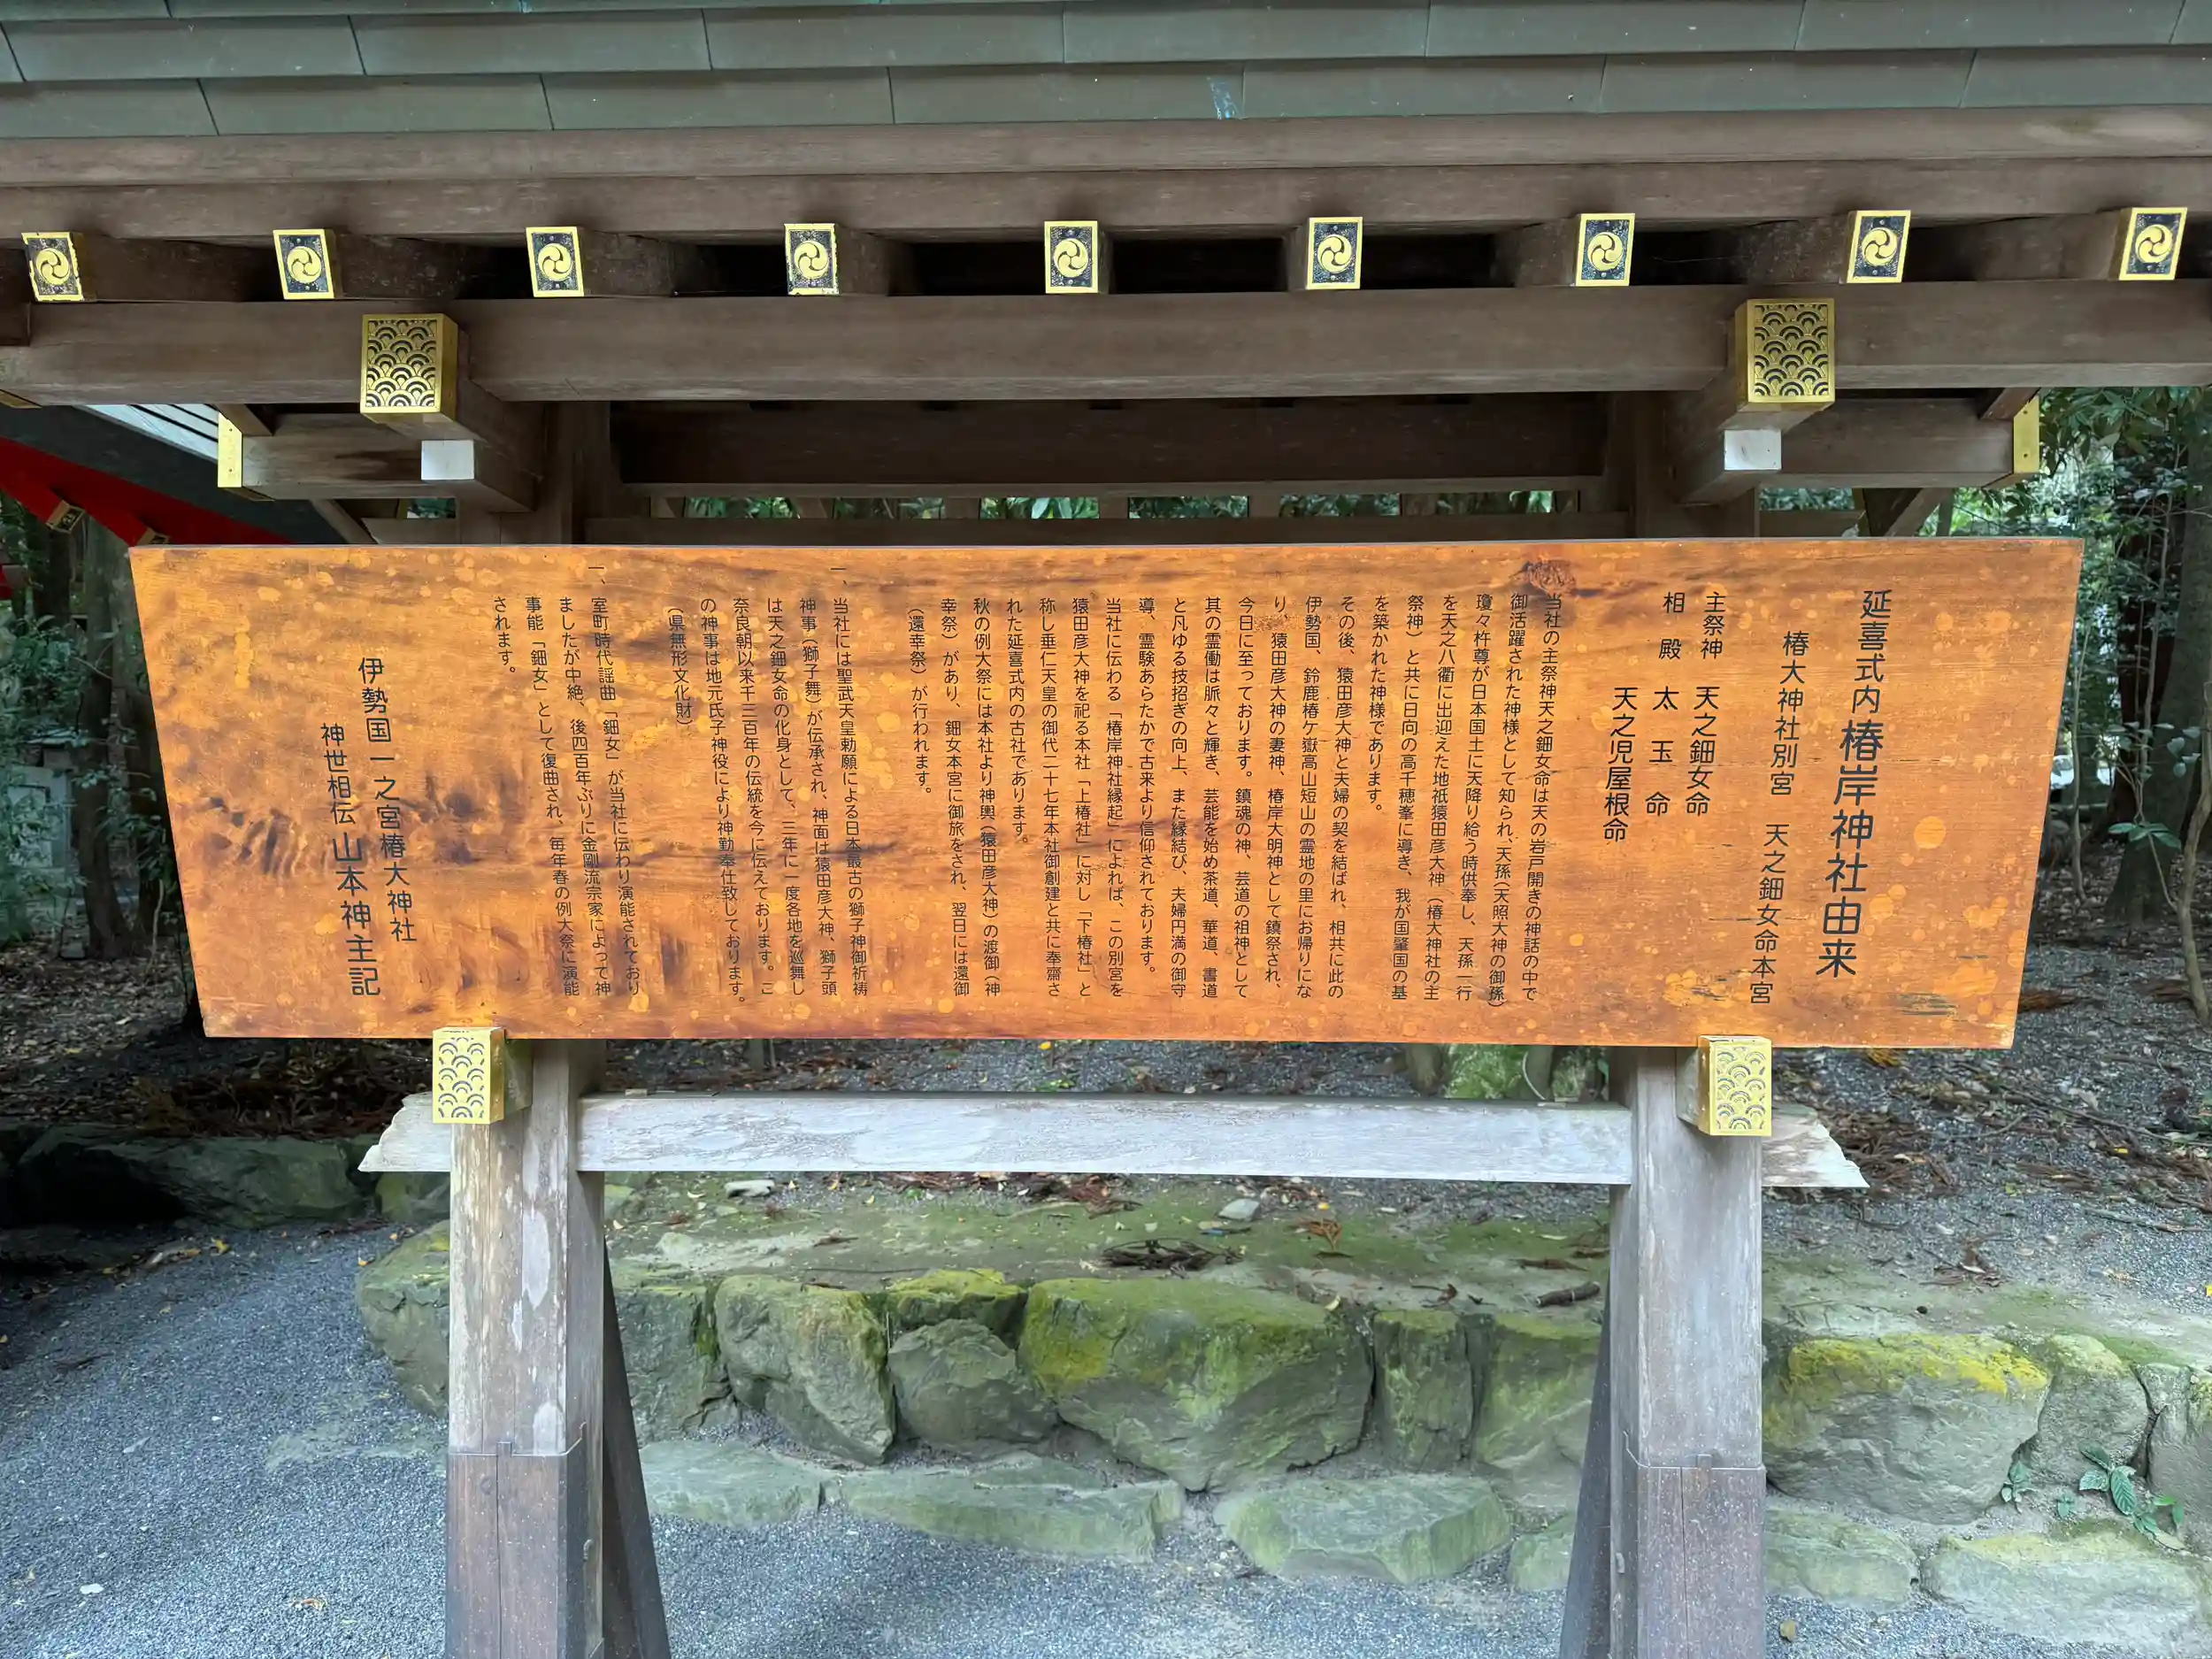 延喜式内 椿岸神社由来
椿大神社別宮 天之鈿女命本宮
主祭神 天之鈿女命
相殿 太玉命
天之児屋根命
当社の主祭神天之鈿女命は天の岩戸開きの神話の中で
御活躍された神様として知られ、天孫(天照大神の御孫)
瓊々杵尊が日本国土に天降り給う時供奉し、天孫一行
を天之八衢に出迎えた地祇猿田彦大神(椿大神社の主
祭神)と共に日向の高千穂峯に導き、我が国肇国の基
を築かれた神様であります。
その後、猿田彦大神と夫婦の契を結ばれ、相共に此の
伊勢国、鈴鹿椿ケ嶽高山短山の霊地の里にお帰りにな
り、猿田彦大神の妻神、椿岸大明神として鎮祭され、
今日に至っております。鎮魂の神、芸道の祖神として
其の霊働は脈々と輝き、芸能を始め茶道、華道、書道
と凡ゆる技招ぎの向上、また縁結び、夫婦円満の御守
導、霊験あらたかで古来より信仰されております。
当社に伝わる「椿岸神社縁起」によれば、この別宮を
猿田彦大神を祀る本社「上椿社」に対し「下椿社」と
称し垂仁天皇の御代二十七年本社御創建と共に奉齋さ
れた延喜式内の古社であります。
秋の例大祭には本社より神輿(猿田彦大神)の渡御(神
幸祭)があり、鈿女本宮に御旅をされ、翌日には還御
(還幸祭)が行われます。
一、当社には聖武天皇勅願による日本最古の獅子神御祈祷
神事(獅子舞)が伝承され、神面は猿田彦大神、獅子頭
は天之鈿女命の化身として、三年に一度各地を巡舞し
奈良朝以来千三百年の伝統を今に伝えております。こ
の神事は地元氏子神役により神勤奉仕致しております。
(県無形文化財)
一、室町時代謡曲「鈿女」が当社に伝わり演能されており
ましたが中絶、後四百年ぶりに金剛流宗家によって神
事能「鈿女」として復曲され、毎年春の例大祭に演能
されます。
伊勢国一之宮椿大神社
神世相伝 山本神主記